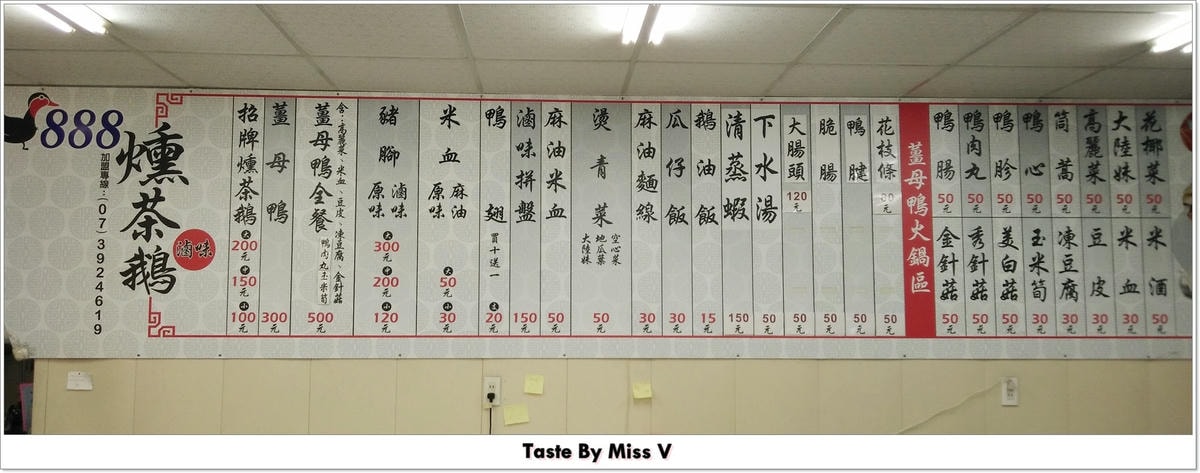 888
燻茶鵝
滷味
加盟專線:(07)3924619
招牌燻茶鵝 大 200元 中 150元 小 100元
薑母鴨 300元
薑母鴨全餐 含:高麗菜、米血、豆皮、凍豆腐、金針菇 鴨肉丸玉米筍 500元
豬腳 原味 滷味 大 300元 中 200元 小 120元
米血 原味 麻油 大 50元 小 30元
鴨翅 買十送一 支 20元
滷味拼盤 150元
麻油米血 50元
燙青菜 大陸妹 地瓜葉 空心菜 50元
麻油麵線 30元
瓜仔飯 30元
鵝油飯 15元
清蒸蝦 150元
下水湯 50元
大腸頭 120元 50元
脆腸 50元
鴨腱 50元
花枝條 80元 50元
薑母鴨火鍋區
鴨腸 50元
鴨肉丸 50元
鴨胗 50元
鴨心 50元
筒蒿 50元
高麗菜 50元
大陸妹 50元
花椰菜 50元
金針菇 50元
秀針菇 50元
美白菇 50元
玉米筍 30元
凍豆腐 30元
豆皮 30元
米血 30元
米酒 50元
Taste By Miss V